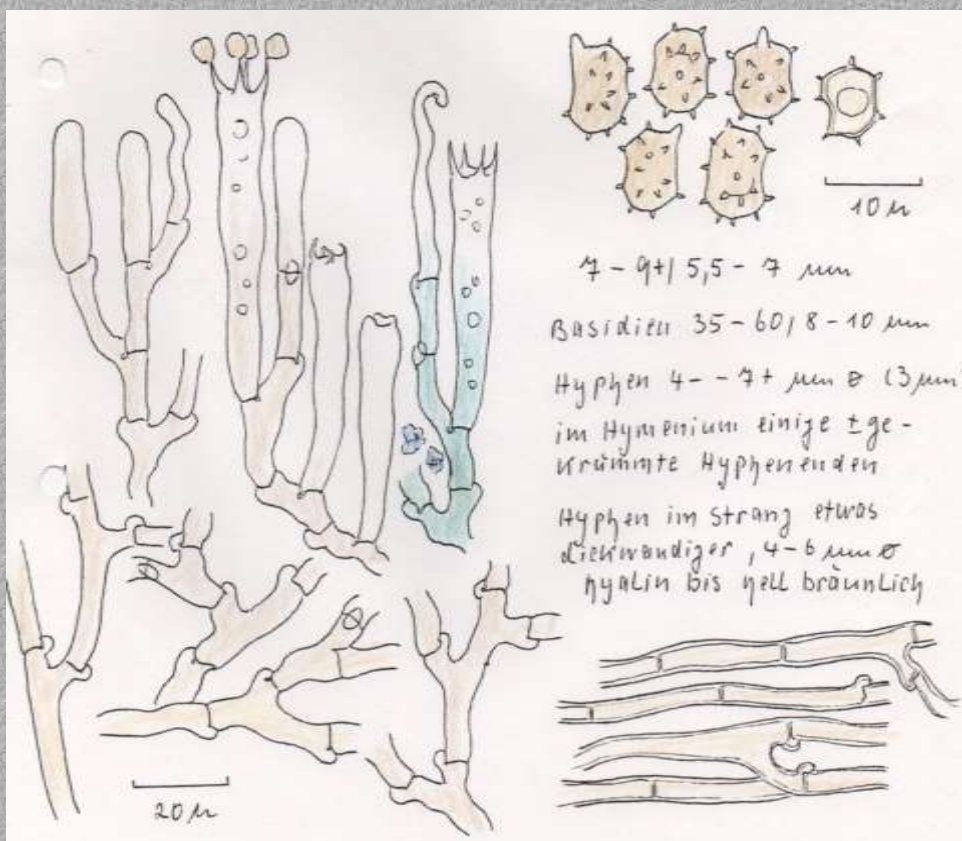 10 µ
7 - 9+/ 5,5 - 7 µm
Basidien 35 - 60/ 8 - 10 µm
Hyphen 4 - - 7+ µm ø (3 µm
im Hymenium einige ± ge-
krümmte Hyphenenden
Hyphen im Strang etwas
dickwandiger, 4-6 µm ø
hyalin bis hell bräunlich
20 µ